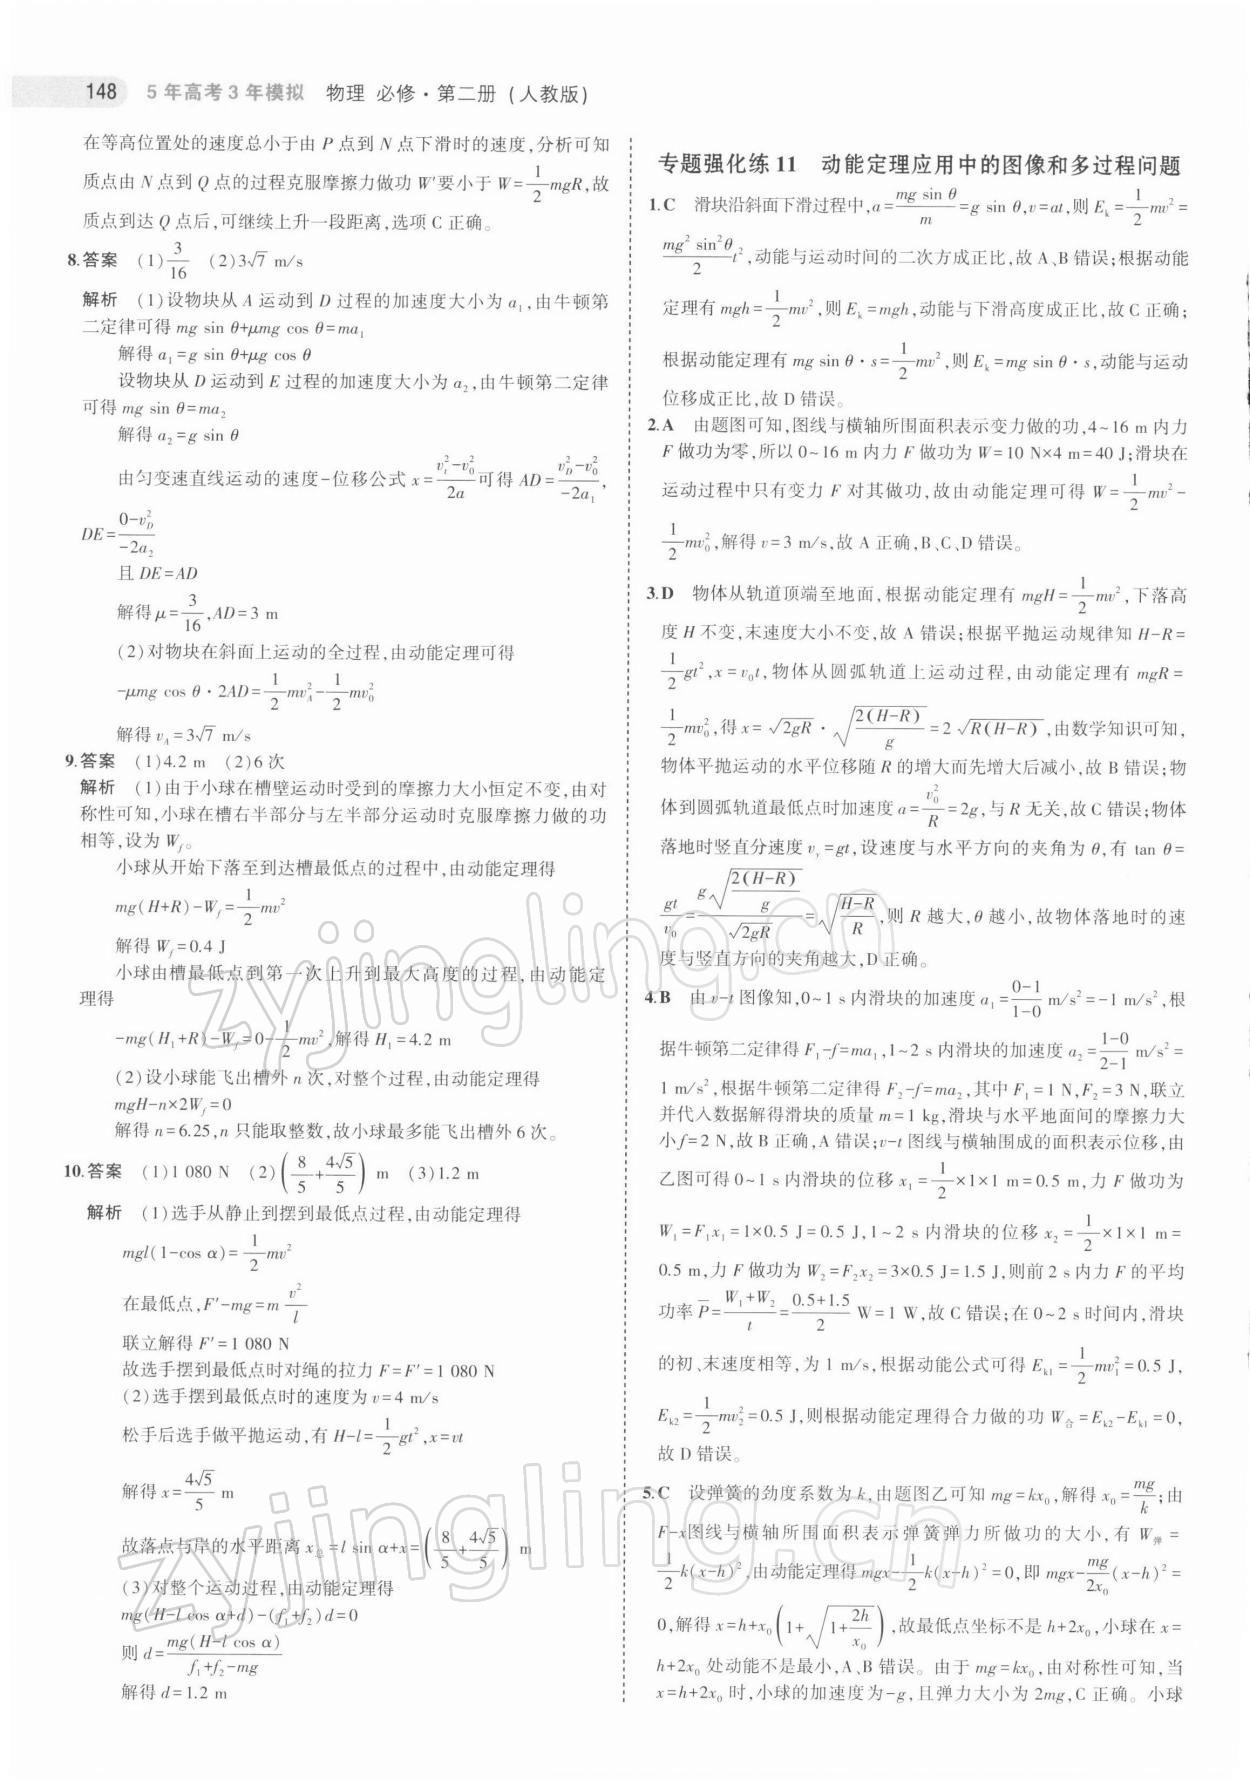 148 5年高考3年模拟 物理 必修·第二册(人教版)
在等高位置处的速度总小于由P点到N点下滑时的速度,分析可知
质点由N点到Q点的过程克服摩擦力做功W′要小于W=1/2 mgR,故
质点到达Q点后,可继续上升一段距离,选项C正确。
8.答案 (1)3/16 (2)3√7 m/s
解析 (1)设物块从A运动到D过程的加速度大小为a₁,由牛顿第
二定律可得mg sin θ+μmg cos θ=ma₁
解得a₁=g sin θ+μg cos θ
设物块从D运动到E过程的加速度大小为a₂,由牛顿第二定律
可得mg sin θ=ma₂
解得a₂=g sin θ
由匀变速直线运动的速度-位移公式x=(v_t²-v₀²)/(2a)可得AD=(v_D²-v₀²)/(-2a₁),
DE=(0-v_D²)/(-2a₂)
且DE=AD
解得μ=3/16,AD=3 m
(2)对物块在斜面上运动的全过程,由动能定理可得
-μmg cos θ·2AD=1/2 mv_A²-1/2 mv₀²
解得v_A=3√7 m/s
9.答案 (1)4.2 m (2)6次
解析 (1)由于小球在槽壁运动时受到的摩擦力大小恒定不变,由对
称性可知,小球在槽右半部分与左半部分运动时克服摩擦力做的功
相等,设为W_f。
小球从开始下落至到达槽最低点的过程中,由动能定理得
mg(H+R)-W_f=1/2 mv²
解得W_f=0.4 J
小球由槽最低点到第一次上升到最大高度的过程,由动能定
理得
-mg(H₁+R)-W_f=0-1/2 mv²,解得H₁=4.2 m
(2)设小球能飞出槽外n次,对整个过程,由动能定理得
mgH-n×2W_f=0
解得n=6.25,n只能取整数,故小球最多能飞出槽外6次。
10.答案 (1)1 080 N (2)(8/5+4√5/5) m (3)1.2 m
解析 (1)选手从静止到摆到最低点过程,由动能定理得
mgl(1-cos α)=1/2 mv²
在最低点,F′-mg=m v²/l
联立解得F′=1 080 N
故选手摆到最低点时对绳的拉力F=F′=1 080 N
(2)选手摆到最低点时的速度为v=4 m/s
松手后选手做平抛运动,有H-l=1/2 gt²,x=vt
解得x=4√5/5 m
故落点与岸的水平距离x总=l sin α+x=(8/5+4√5/5) m
(3)对整个运动过程,由动能定理得
mg(H-l cos α+d)-(f₁+f₂)d=0
则d=mg(H-l cos α)/(f₁+f₂-mg)
解得d=1.2 m
专题强化练11 动能定理应用中的图像和多过程问题
1.C 滑块沿斜面下滑过程中,a=mg sin θ/m=g sin θ,v=at,则E_k=1/2 mv²=
(mg² sin²θ/2)t²,动能与运动时间的二次方成正比,故A、B错误;根据动能
定理有mgh=1/2 mv²,则E_k=mgh,动能与下滑高度成正比,故C正确;
根据动能定理有mg sin θ·s=1/2 mv²,则E_k=mg sin θ·s,动能与运动
位移成正比,故D错误。
2.A 由题图可知,图线与横轴所围面积表示变力做的功,4~16 m内力
F做功为零,所以0~16 m内力F做功为W=10 N×4 m=40 J;滑块在
运动过程中只有变力F对其做功,故由动能定理可得W=1/2 mv²-
1/2 mv₀²,解得v=3 m/s,故A正确,B、C、D错误。
3.D 物体从轨道顶端至地面,根据动能定理有mgH=1/2 mv²,下落高
度H不变,末速度大小不变,故A错误;根据平抛运动规律知H-R=
1/2 gt²,x=v₀t,物体从圆弧轨道上运动过程,由动能定理有mgR=
1/2 mv₀²,得x=√(2gR)·√(2(H-R)/g)=2√(R(H-R)),由数学知识可知,
物体平抛运动的水平位移随R的增大而先增大后减小,故B错误;物
体到圆弧轨道最低点时加速度a=v₀²/R=2g,与R无关,故C错误;物体
落地时竖直分速度v_y=gt,设速度与水平方向的夹角为θ,有tan θ=
gt/v₀=g√(2(H-R)/g)/√(2gR)=√((H-R)/R),则R越大,θ越小,故物体落地时的速
度与竖直方向的夹角越大,D正确。
4.B 由v-t图像知,0~1 s内滑块的加速度a₁=(0-1)/(1-0) m/s²=-1 m/s²,根
据牛顿第二定律得F₁-f=ma₁,1~2 s内滑块的加速度a₂=(1-0)/(2-1) m/s²=
1 m/s²,根据牛顿第二定律得F₂-f=ma₂,其中F₁=1 N,F₂=3 N,联立
并代入数据解得滑块的质量m=1 kg,滑块与水平地面间的摩擦力大
小f=2 N,故B正确,A错误;v-t图线与横轴围成的面积表示位移,由
乙图可得0~1 s内滑块的位移x₁=1/2×1×1 m=0.5 m,力F做功为
W₁=F₁x₁=1×0.5 J=0.5 J,1~2 s内滑块的位移x₂=1/2×1×1 m=
0.5 m,力F做功为W₂=F₂x₂=3×0.5 J=1.5 J,则前2 s内力F的平均
功率P̄=(W₁+W₂)/t=(0.5+1.5)/2 W=1 W,故C错误;在0~2 s时间内,滑块
的初、末速度相等,为1 m/s,根据动能公式可得E_k1=1/2 mv₁²=0.5 J,
E_k2=1/2 mv₂²=0.5 J,则根据动能定理得合力做的功W合=E_k2-E_k1=0,
故D错误。
5.C 设弹簧的劲度系数为k,由题图乙可知mg=kx₀,解得x₀=mg/k;由
F-x图线与横轴所围面积表示弹簧弹力所做功的大小,有W弹=
1/2 k(x-h)²,由动能定理得mgx-1/2 k(x-h)²=0,即mgx-mg/(2x₀)(x-h)²=
0,解得x=h+x₀(1+√(1+2h/x₀)),故最低点坐标不是h+2x₀,小球在x=
h+2x₀处动能不是最小,A、B错误。由于mg=kx₀,由对称性可知,当
x=h+2x₀时,小球的加速度为-g,且弹力大小为2mg,C正确。小球
zyjingling.cn
zyjingling.cn